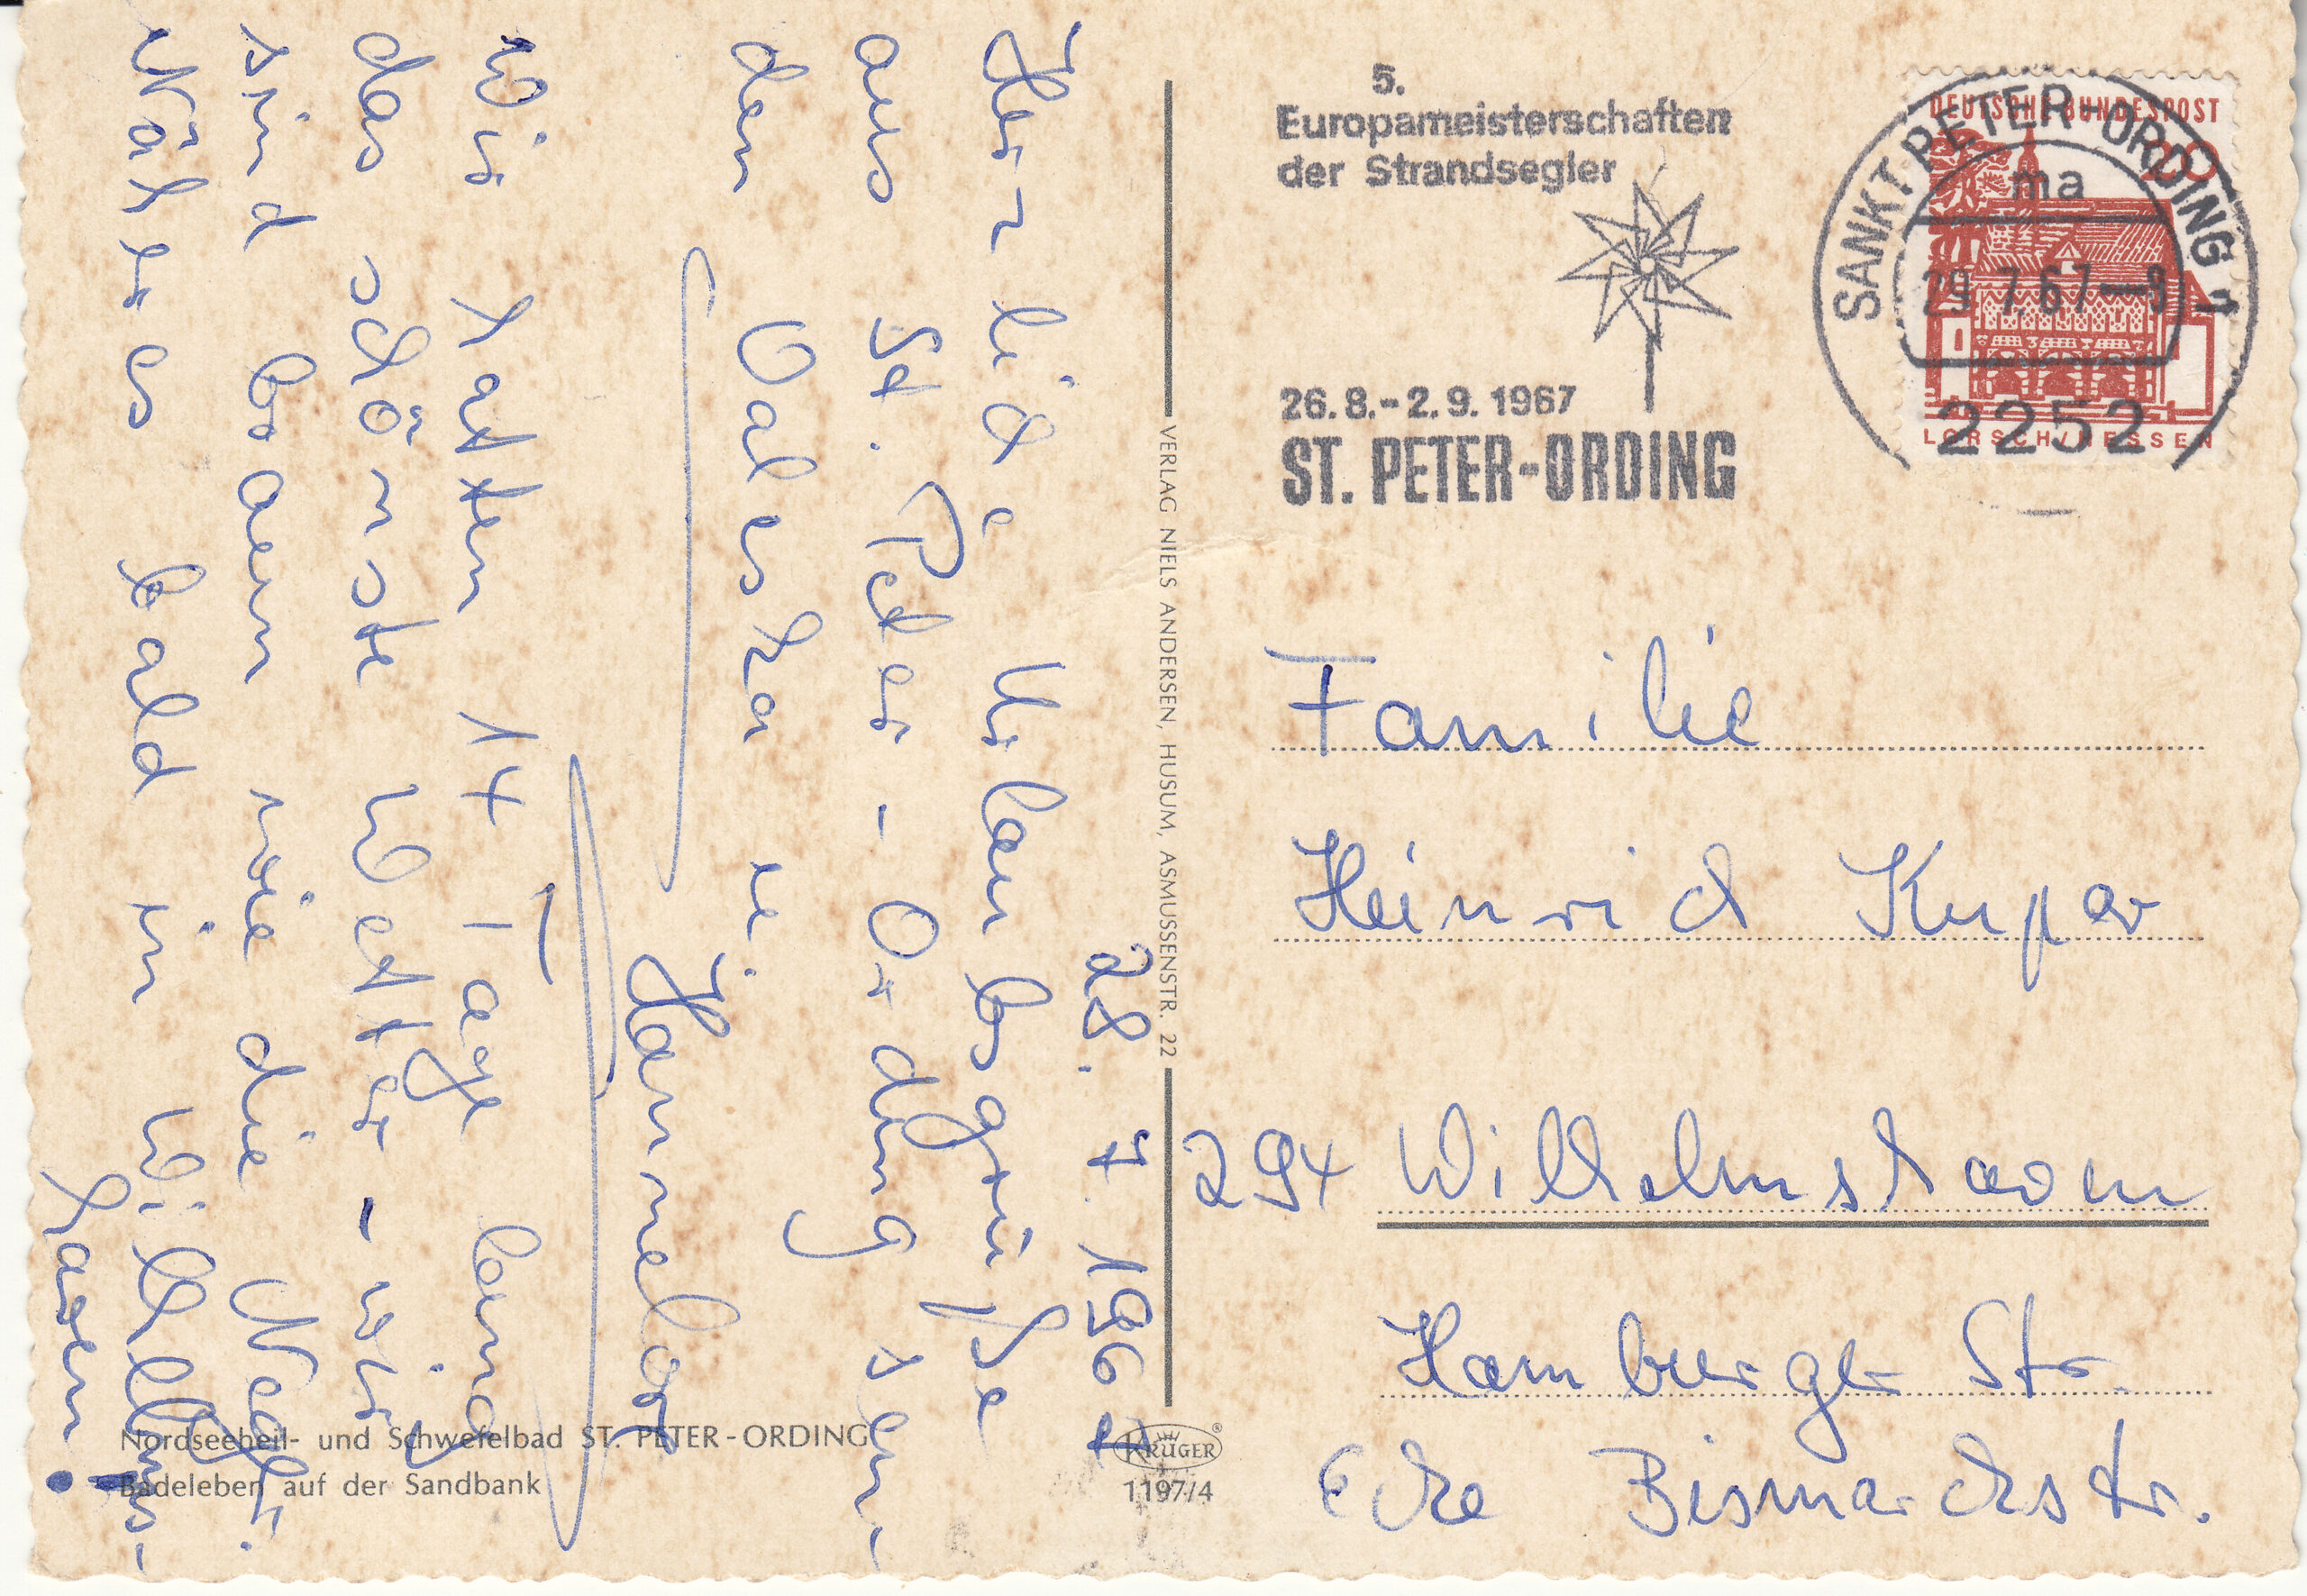 28. 7. 1967
Herzliche Urlaubsgrüße
aus St. Peter-Ording sen-
den Valeska u.
Hannelore
Wir hatten 14 Tage lang
das schönste Wetter - wir
sind braun wie die Neger.
Näheres bald in Wilhelms-
haven!
5.
Europameisterschaften
der Strandsegler
26.8.-2.9.1967
ST. PETER-ORDING
DEUTSCHE BUNDESPOST
LORSCH/HESSEN
SANKT PETER-ORDING 1
ma
29.7.67-9
2252
VERLAG NIELS ANDERSEN, HUSUM, ASMUSSENSTR. 22
Familie
Heinrich Kuper
294 Wilhelmshaven
Hamburger Str.
Ecke Bismarckstr.
Nordseeheil- und Schwefelbad ST. PETER-ORDING
Badeleben auf der Sandbank
KRÜGER
1197/4